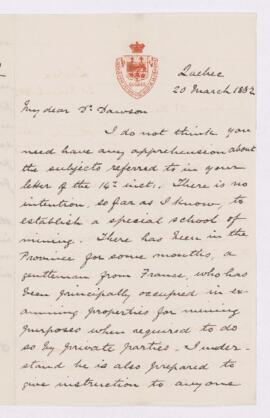 Quebec
20 March 1882
My dear Dr. Dawson
I do not think you
need have any apprehension about
the subjects referred to in your
letter of the 14th inst. There is no
intention, so far as I know, to
establish a special school of
mining. There has been in the
Province for some months, a
gentleman from France, who has
been principally occupied in ex-
amining properties for mining
purposes when required to do
so by private parties. I under-
stand he is also prepared to
give instruction to anyone